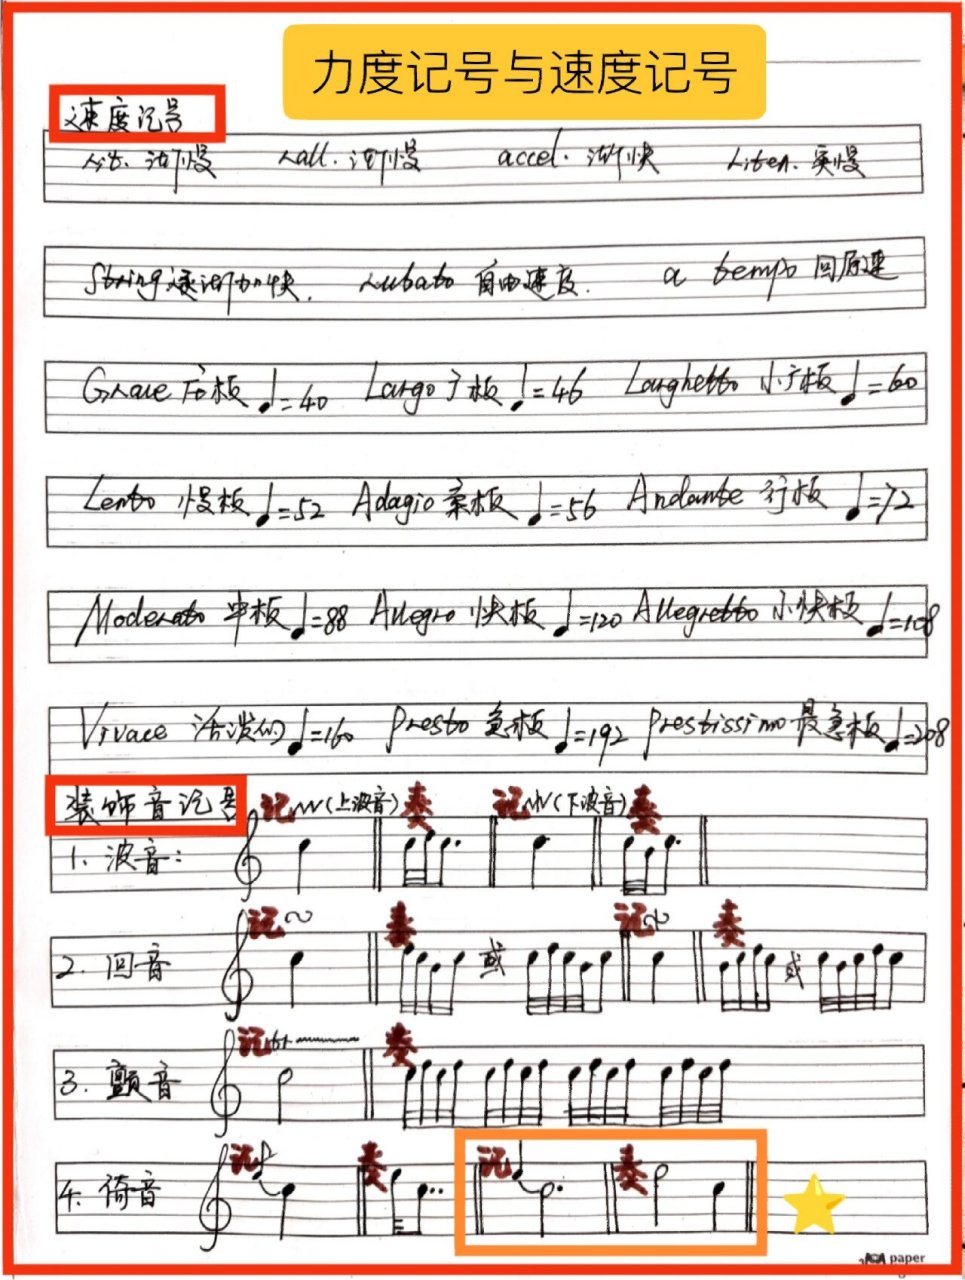 力度记号与速度记号
速度记号
rit. 渐慢 rall. 渐慢 accel. 渐快 riten. 突慢
String 逐渐加快. rubato 自由速度. a tempo 回原速
Grave 庄板 ♩=40 Largo 广板 ♩=46 Larghetto 小广板 ♩=60
Lento 慢板 ♩=52 Adagio 柔板 ♩=56 Andante 行板 ♩=72
Moderato 中板 ♩=88 Allegro 快板 ♩=120 Allegretto 小快板 ♩=108
Vivace 活泼的 ♩=160 Presto 急板 ♩=192 Prestissimo 最急板 ♩=208
装饰音记号
记 (上波音) 奏 记 (下波音) 奏
1. 波音:
记 奏 记 奏
2. 回音 或 或
记 tr 奏
3. 颤音
记 奏 记 奏
4. 倚音
paper